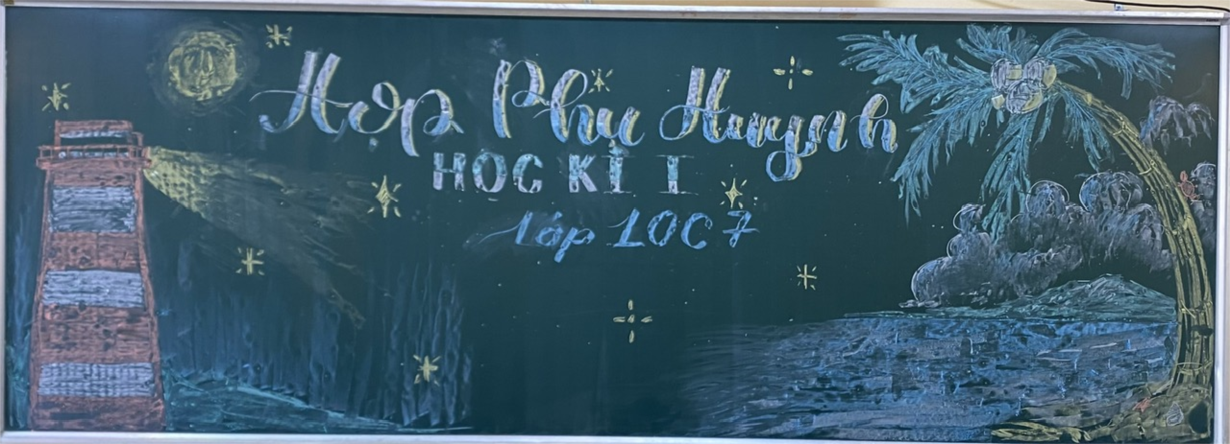 Họp Phụ Huynh
HỌC KÌ I
Lớp 10C7